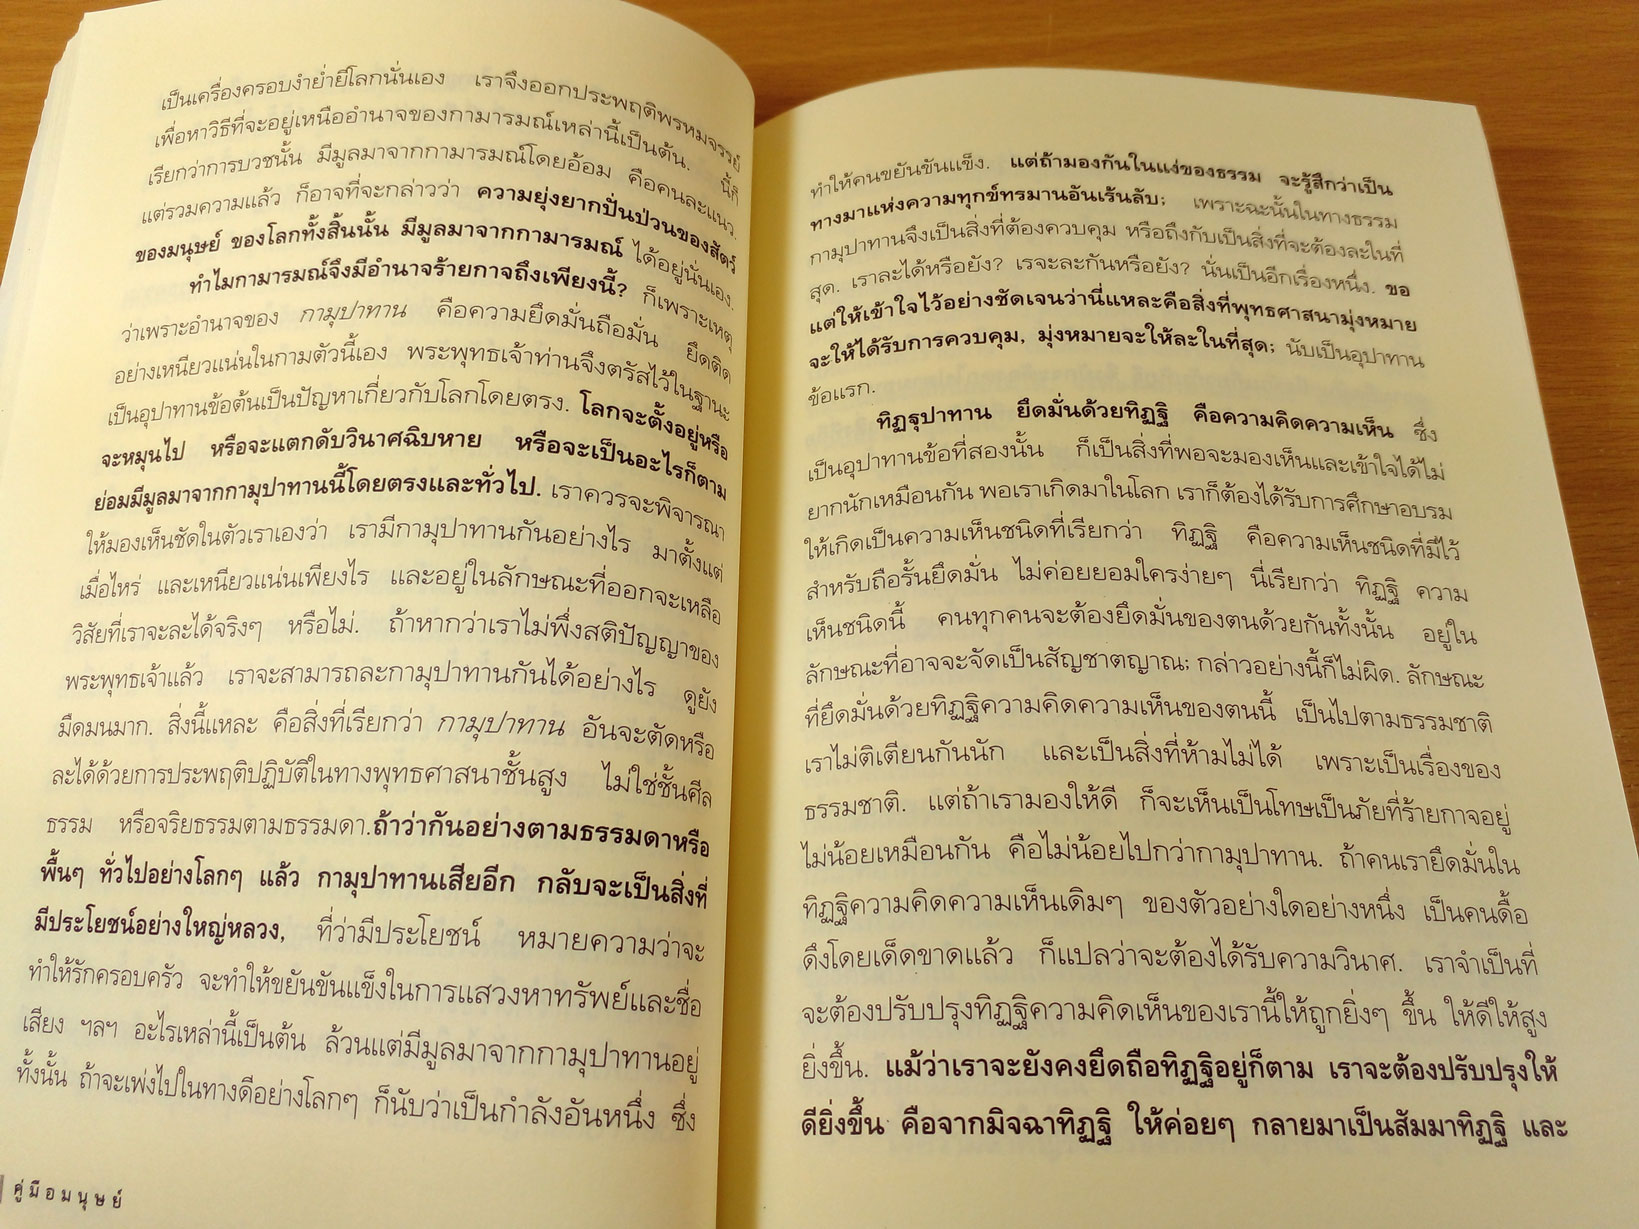 เป็นเครื่องครอบงำย่ำยีโลกนั่นเอง เราจึงออกประพฤติพรหมจรรย์
เพื่อหาวิธีที่จะอยู่เหนืออำนาจของกามารมณ์เหล่านี้เป็นต้น. นี้ก็
เรียกว่าการบวชนั้น มีมูลมาจากกามารมณ์โดยอ้อม คือคนละแนว.
แต่รวมความแล้ว ก็อาจที่จะกล่าวว่า ความยุ่งยากปั่นป่วนของสัตว์
ของมนุษย์ ของโลกทั้งสิ้นนั้น มีมูลมาจากกามารมณ์ ได้อยู่นั่นเอง.
ทำไมกามารมณ์จึงมีอำนาจร้ายกาจถึงเพียงนี้? ก็เพราะเหตุ
ว่าเพราะอำนาจของ กามุปาทาน คือความยึดมั่นถือมั่น ยึดติด
อย่างเหนียวแน่นในกามตัวนี้เอง พระพุทธเจ้าท่านจึงตรัสไว้ในฐานะ
เป็นอุปาทานข้อต้นเป็นปัญหาเกี่ยวกับโลกโดยตรง. โลกจะตั้งอยู่หรือ
จะหมุนไป หรือจะแตกดับวินาศฉิบหาย หรือจะเป็นอะไรก็ตาม
ย่อมมีมูลมาจากกามุปาทานนี้โดยตรงและทั่วไป. เราควรจะพิจารณา
ให้มองเห็นชัดในตัวเราเองว่า เรามีกามุปาทานกันอย่างไร มาตั้งแต่
เมื่อไหร่ และเหนียวแน่นเพียงไร และอยู่ในลักษณะที่ออกจะเหลือ
วิสัยที่เราจะละได้จริงๆ หรือไม่. ถ้าหากว่าเราไม่พึ่งสติปัญญาของ
พระพุทธเจ้าแล้ว เราจะสามารถละกามุปาทานกันได้อย่างไร ดูยัง
มืดมนมาก. สิ่งนี้แหละ คือสิ่งที่เรียกว่า กามุปาทาน อันจะตัดหรือ
ละได้ด้วยการประพฤติปฏิบัติในทางพุทธศาสนาชั้นสูง ไม่ใช่ชั้นศีล
ธรรม หรือจริยธรรมตามธรรมดา.ถ้าว่ากันอย่างตามธรรมดาหรือ
พื้นๆ ทั่วไปอย่างโลกๆ แล้ว กามุปาทานเสียอีก กลับจะเป็นสิ่งที่
มีประโยชน์อย่างใหญ่หลวง, ที่ว่ามีประโยชน์ หมายความว่าจะ
ทำให้รักครอบครัว จะทำให้ขยันขันแข็งในการแสวงหาทรัพย์และชื่อ
เสียง ฯลฯ อะไรเหล่านี้เป็นต้น ล้วนแต่มีมูลมาจากกามุปาทานอยู่
ทั้งนั้น ถ้าจะเพ่งไปในทางดีอย่างโลกๆ ก็นับว่าเป็นกำลังอันหนึ่ง ซึ่ง
คู่มือมนุษย์
ทำให้คนขยันขันแข็ง. แต่ถ้ามองกันในแง่ของธรรม จะรู้สึกว่าเป็น
ทางมาแห่งความทุกข์ทรมานอันเร้นลับ; เพราะฉะนั้นในทางธรรม
กามุปาทานจึงเป็นสิ่งที่ต้องควบคุม หรือถึงกับเป็นสิ่งที่จะต้องละในที่
สุด. เราละได้หรือยัง? เรจะละกันหรือยัง? นั่นเป็นอีกเรื่องหนึ่ง. ขอ
แต่ให้เข้าใจไว้อย่างชัดเจนว่านี่แหละคือสิ่งที่พุทธศาสนามุ่งหมาย
จะให้ได้รับการควบคุม, มุ่งหมายจะให้ละในที่สุด; นับเป็นอุปาทาน
ข้อแรก.
ทิฏฐุปาทาน ยึดมั่นด้วยทิฏฐิ คือความคิดความเห็น ซึ่ง
เป็นอุปาทานข้อที่สองนั้น ก็เป็นสิ่งที่พอจะมองเห็นและเข้าใจได้ไม่
ยากนักเหมือนกัน พอเราเกิดมาในโลก เราก็ต้องได้รับการศึกษาอบรม
ให้เกิดเป็นความเห็นชนิดที่เรียกว่า ทิฏฐิ คือความเห็นชนิดที่มีไว้
สำหรับถือรั้นยึดมั่น ไม่ค่อยยอมใครง่ายๆ นี่เรียกว่า ทิฏฐิ ความ
เห็นชนิดนี้ คนทุกคนจะต้องยึดมั่นของตนด้วยกันทั้งนั้น อยู่ใน
ลักษณะที่อาจจะจัดเป็นสัญชาตญาณ; กล่าวอย่างนี้ก็ไม่ผิด. ลักษณะ
ที่ยึดมั่นด้วยทิฏฐิความคิดความเห็นของตนนี้ เป็นไปตามธรรมชาติ
เราไม่ติเตียนกันนัก และเป็นสิ่งที่ห้ามไม่ได้ เพราะเป็นเรื่องของ
ธรรมชาติ. แต่ถ้าเรามองให้ดี ก็จะเห็นเป็นโทษเป็นภัยที่ร้ายกาจอยู่
ไม่น้อยเหมือนกัน คือไม่น้อยไปกว่ากามุปาทาน. ถ้าคนเรายึดมั่นใน
ทิฏฐิความคิดความเห็นเดิมๆ ของตัวอย่างใดอย่างหนึ่ง เป็นคนดื้อ
ดึงโดยเด็ดขาดแล้ว ก็แปลว่าจะต้องได้รับความวินาศ. เราจำเป็นที่
จะต้องปรับปรุงทิฏฐิความคิดเห็นของเรานี้ให้ถูกยิ่งๆ ขึ้น ให้ดีให้สูง
ยิ่งขึ้น. แม้ว่าเราจะยังคงยึดถือทิฏฐิอยู่ก็ตาม เราจะต้องปรับปรุงให้
ดียิ่งขึ้น คือจากมิจฉาทิฏฐิ ให้ค่อยๆ กลายมาเป็นสัมมาทิฏฐิ และ